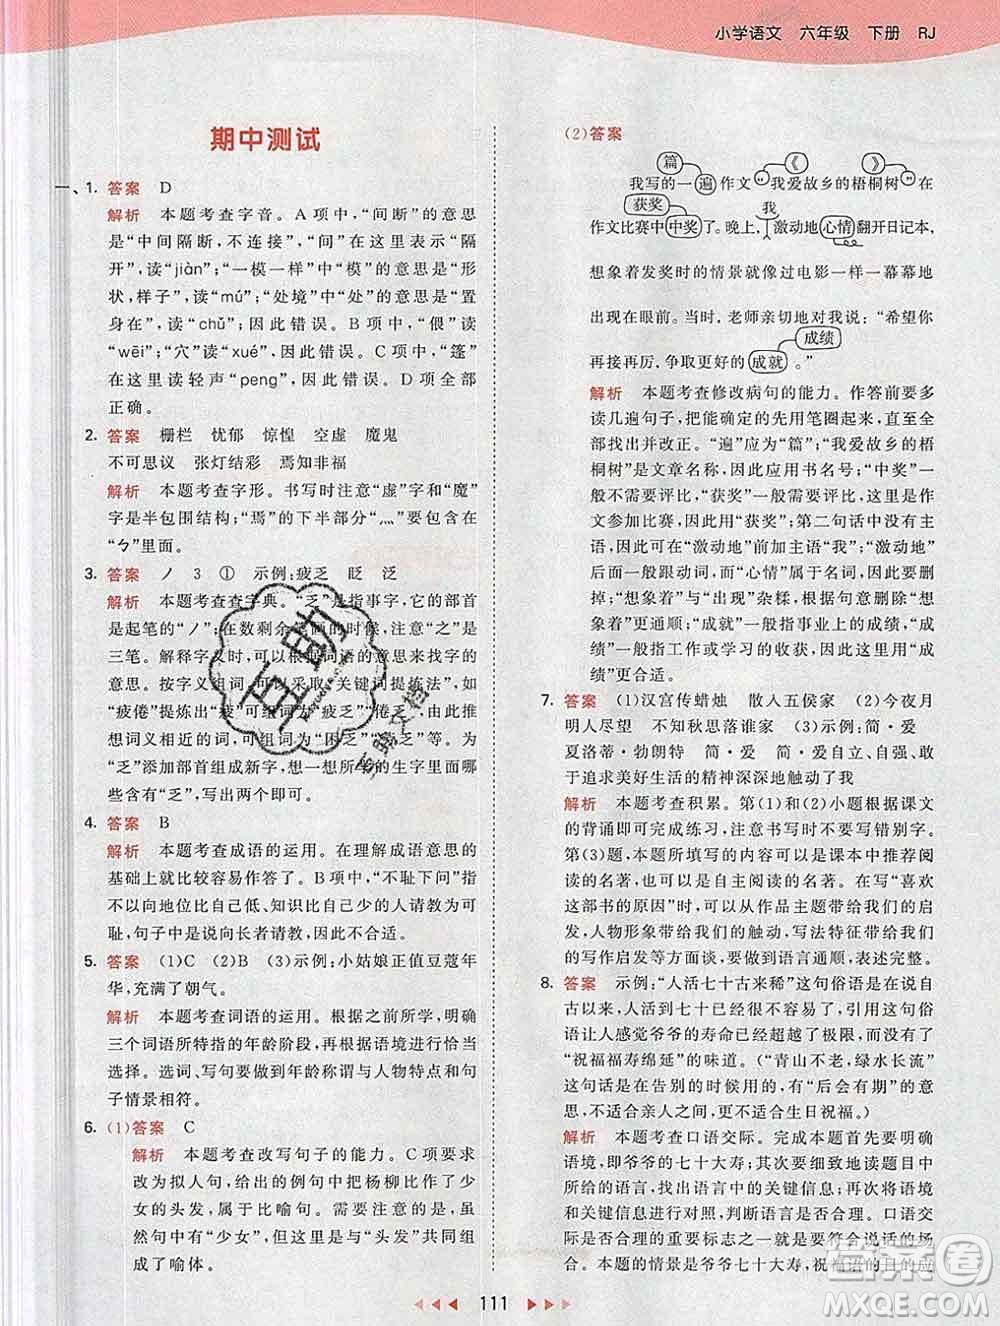 小学语文 六年级 下册 RJ
期中测试
一、1. 答案 D
解析 本题考查字音。A 项中，“间断”的意思
是“中间隔断，不连接”，“间”在这里表示“隔
开”，读“jiàn”；“一模一样”中“模”的意思是“形
状，样子”，读“mú”；“处境”中“处”的意思是“置
身在”，读“chǔ”；因此错误。B 项中，“偎”读
“wēi”；“穴”读“xué”，因此错误。C 项中，“篷”
在这里读轻声“peng”，因此错误。D 项全部
正确。
2. 答案 栅栏 忧郁 惊惶 空虚 魔鬼
不可思议 张灯结彩 焉知非福
解析 本题考查字形。书写时注意“虚”字和“魔”
字是半包围结构；“焉”的下半部分“灬”要包含在
“ㄅ”里面。
3. 答案 丿 3 ① 示例：疲乏 眨 泛
解析 本题考查查字典。“乏”是指事字，它的部首
是起笔的“丿”；在数剩余笔画的时候，注意“之”是
三笔。解释字义时，可以根据词语的意思找字的
意思，选择字义。按字义组词，可以采取“关键词提炼法”，如
“疲倦”提炼出“疲”可组词为“疲乏”“倦乏”，由此推
想词义相近的词，可组词为“困乏”“累乏”等。以
“乏”字为部首组成新字，想一想所学的生字里面哪
些含有“乏”，写出两个即可。
4. 答案 B
解析 本题考查成语的运用。在理解成语意思的
基础上就比较容易作答了。B 项中，“不耻下问”指
不以向地位比自己低、知识比自己少的人请教为可
耻，句子中是向长者请教，因此不合适。
5. 答案 (1)C (2)B (3)示例：小姑娘正值豆蔻年
华，充满了朝气。
解析 本题考查词语的运用。根据所学知识，明确
三个词语所特指的年龄阶段，再根据语境进行正确
选择。选词、写句要做到年龄称谓与人物特点和句
子情景相符。
6. (1)答案 C
解析 本题考查改写句子的能力。C 项要求
改为拟人句，给出的例句中把杨柳比作了少
女的头发，属于比喻句。虽然句中有“少女”，
但是这里的重点是与“头发”共同组合而成
了喻体。
(2)答案
篇 《 》
我写的一遍作文“我爱故乡的梧桐树”在
获奖 我
作文比赛中中奖了。晚上，激动地心情翻开日记本，
想象着发奖时的情景就像过电影一样一幕幕地
出现在眼前。当时，老师亲切地对我说：“希望你
成绩
再接再厉，争取更好的成就。”
解析 本题考查修改病句的能力。作答前应多
读几遍句子，把能确定的先用笔圈起来，直至全
部找出并改正。“遍”应为“篇”；“我爱故乡的梧
桐树”是文章名称，因此用书名号；“中奖”一
般不需要评比，“获奖”一般需要评比，这里是作
文参加比赛，因此用“获奖”；第二句话中没有主
语，因此需要在“激动地”前加主语“我”；“地”
后面一般跟动词，而“心情”属于名词，因此要删
掉；“想象着”与“出现”杂糅，根据意思删除“想
象着”更通顺；“成就”一般指事业上的成绩，“成
绩”一般指工作或学习的收获，因此这里用“成
绩”更合适。
7. 答案 (1)汉宫传蜡烛 散入五侯家 (2)今夜月
明人尽望 不知秋思落谁家 (3)示例：简·爱
夏洛蒂·勃朗特 简·爱 简·爱自立、自强、敢
于追求美好生活的精神深深地触动了我
解析 本题考查积累。第(1)和(2)小题根据课文
的背诵即可完成练习，注意书写时不要写错别字。
第(3)题，本题所填写的内容可以是课本中推荐阅
读的名著，也可以是自主阅读的名著。在写“喜爱
这部书的原因”时，可以从作品主题带给我们的启
发，人物形象带给我们的触动，写法特征带给我们
的写作启发等方面谈，注意要做到语言通顺，表述完整。
8. 答案 示例：“人活七十古来稀”这句俗语是说自
古以来，人活到七十已经是很少的了，所以这句俗
语会让人感觉爷爷的寿命已经超越了极限，而没有
“祝福福寿绵延”的味道。（“青山不老，绿水长流”
这句话适合在告别的时候用的，有“后会有期”的意
思，出现在这里不合适，不适合生日祝福。）
解析 本题考查口语交际。完成本题首先要明确
语境，即爷爷的七十大寿；其次要细致地阅读人物
的语言，找出语言中的关键信息；再次要将语境与
关键信息进行对照，判断语言是否合理。口语交
际是否合理的重要标志之一就是要符合说话的场
合。本题的情景是爷爷七十大寿，祝福语的目的应
111
互助
答案卷
MXQE.COM